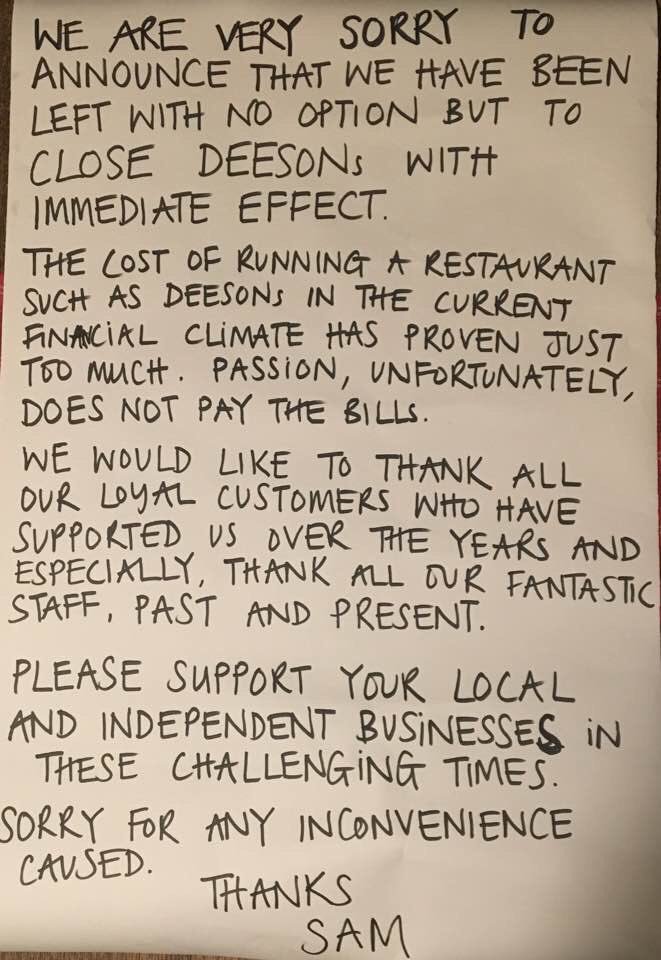 WE ARE VERY SORRY TO
ANNOUNCE THAT WE HAVE BEEN
LEFT WITH NO OPTION BUT TO
CLOSE DEESONs WITH
IMMEDIATE EFFECT.
THE COST OF RUNNING A RESTAURANT
SUCH AS DEESONs IN THE CURRENT
FINANCIAL CLIMATE HAS PROVEN JUST
TOO MUCH. PASSION, UNFORTUNATELY,
DOES NOT PAY THE BILLS.
WE WOULD LIKE TO THANK ALL
OUR LOYAL CUSTOMERS WHO HAVE
SUPPORTED US OVER THE YEARS AND
ESPECIALLY, THANK ALL OUR FANTASTIC
STAFF, PAST AND PRESENT.
PLEASE SUPPORT YOUR LOCAL
AND INDEPENDENT BUSINESSES IN
THESE CHALLENGING TIMES.
SORRY FOR ANY INCONVENIENCE
CAUSED.
THANKS
SAM